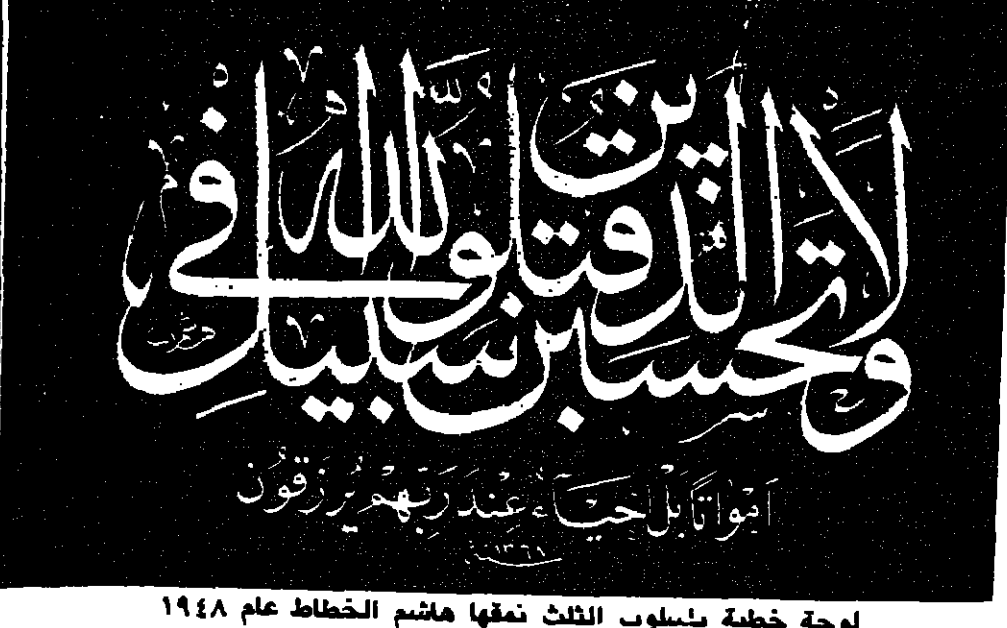 ولا تحسبن الذين قتلوا في سبيل الله
امواتًا بل احيآء عند ربهم يرزقون
سنة ١٣٦٨
لوحة خطية بأسلوب الثلث نمقها هاشم الخطاط عام ١٩٤٨